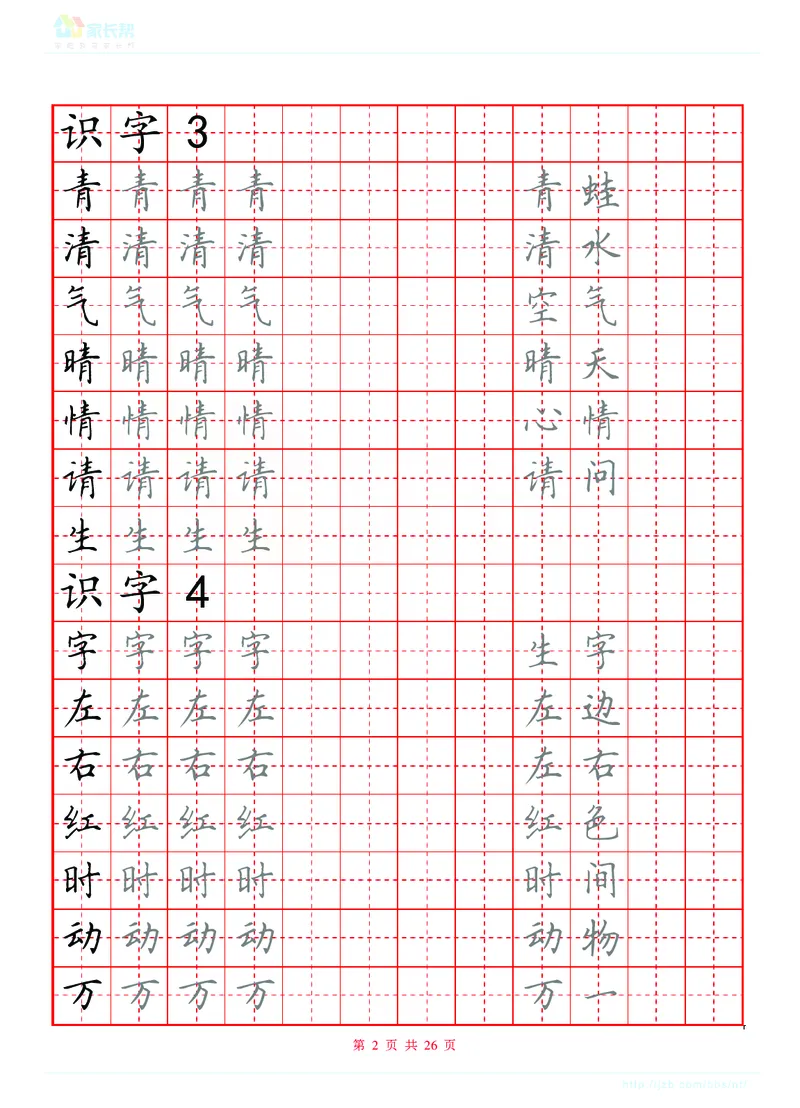 家长帮
识字3
青青青青 青蛙
清清清清 清水
气气气气 空气
晴晴晴晴 晴天
情情情情 心情
请请请请 请问
生生生生
识字4
字字字字 生字
左左左左 左边
右右右右 左右
红红红红 红色
时时时时 时间
动动动动 动物
万万万万 万一
第 2 页 共 26 页